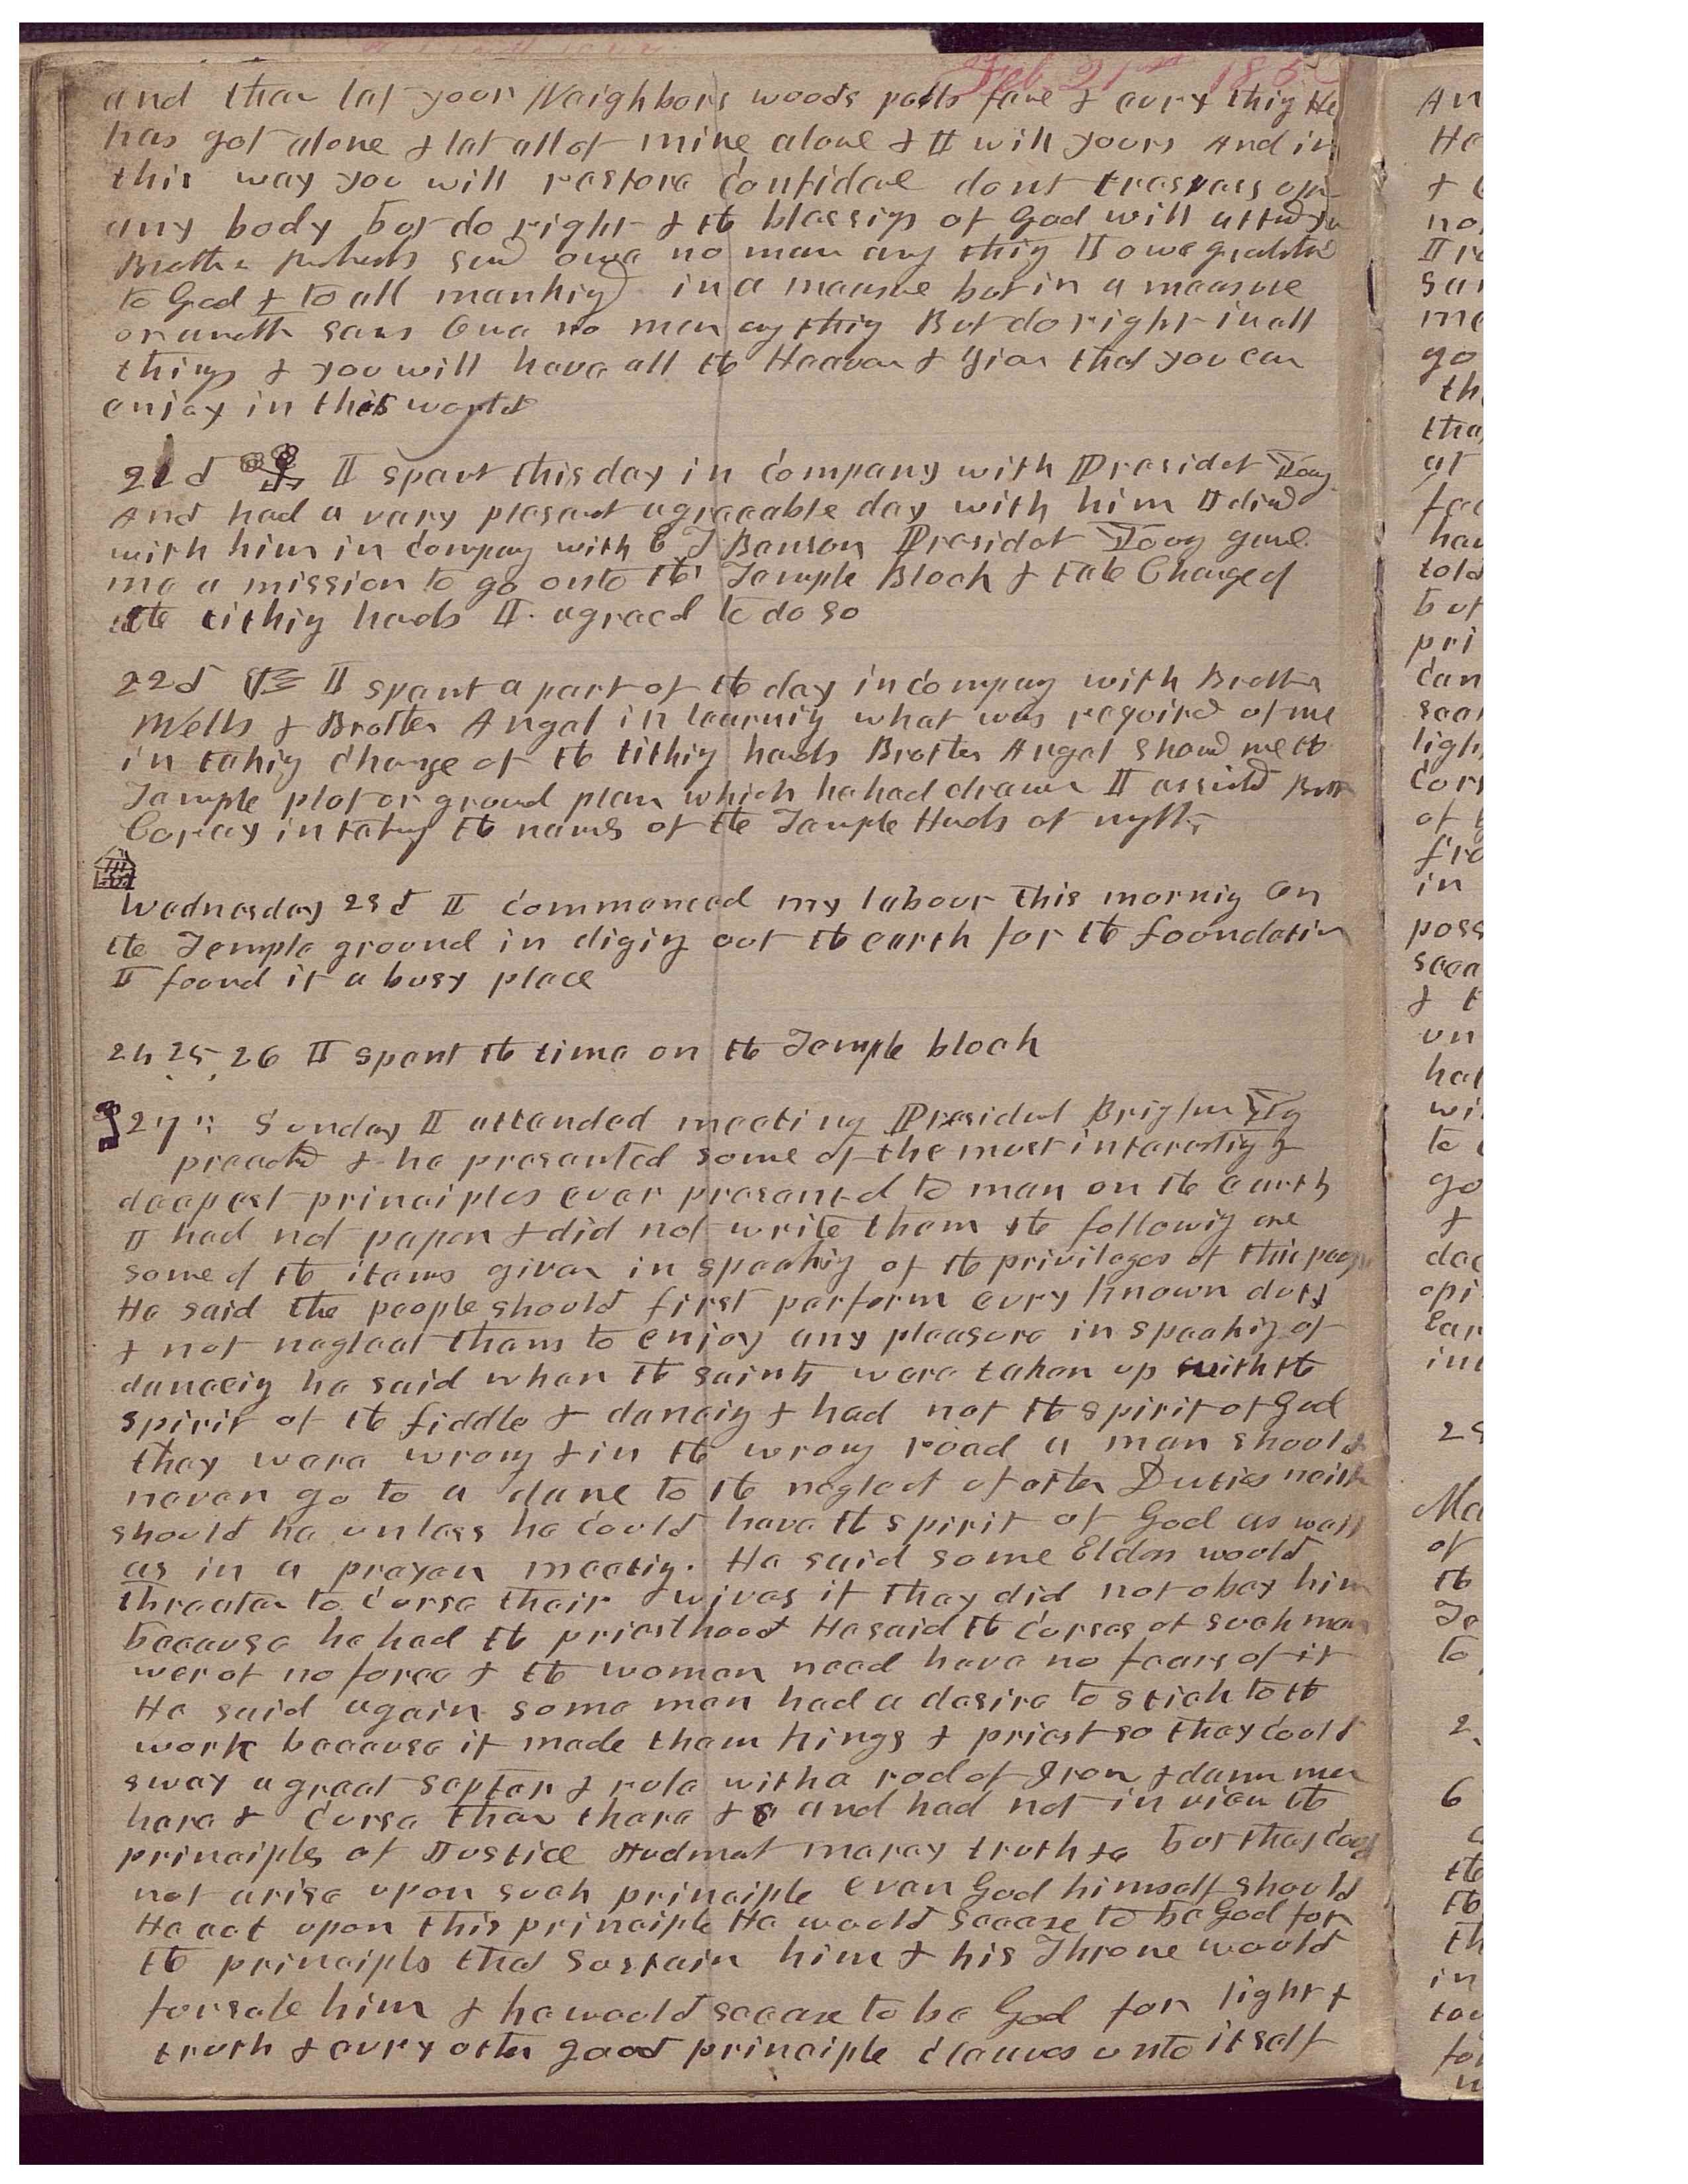 Feb 21st 185
and then let your Neighbors woods poles fence & evry thig He
has got alone & let all of mine alone & I will yours And in
this way you will restore Confidence dont trespass upon
any body but do right & the blessigs of God will attend you
Brother Roberts said owe no man any thig I owe gratitude
to God & to all mankind in a measure but in a measure
or another sens Owe no man any thig But do right in all
things & you will have all the Heaven & Zion that you can
enjoy in this world
21d I spent this day in Company with President Young
And had a vary plesant agreeable day with him I dined
with him in Compay with E T Benson President Young gave
me a mission to go onto the Temple Block & take Charge of
the tithig hands I agreed to do so
22d I spent a part of the day in Compay with Brother
Wells & Brother Angel in learnig what was required of me
in takig Charge of the tithig hands Brother Angel showed me the
Temple plot or ground plan which he had drawn I assisted Brother
Coray in takig the names of the Temple Hands at night
Wednesday 23d I Commenced my labour this mornig on
the Temple ground in digig out the earth for the foundation
I found it a busy place
24, 25, 26 I spent the time on the Temple block
27th Sunday I attended meeting President Brigham Young
preached & he presented some of the most interestig &
deepest principles ever presented to man on the earth
I had not paper & did not write them the followig are
some of the items given in speakig of the privileges of this people
He said the people should first perform evry known duty
& not neglect them to enjoy any pleasure in speakig of
danceig he said when the saints were taken up with the
spirit of the fiddle & dancig & had not the spirit of God
they were wrong & in the wrong road a man should
never go to a dance to the neglect of other Duties neither
should he unless he Could have the spirit of God as well
as in a prayer meetig. He said some Elders would
threaten to Curse their wives if they did not obey him
because he had the priesthood He said the Curses of such men
wer of no force & the woman need have no fears of it
He said again some men had a desire to stick to the
work because it made them kings & priest so they Could
sway a great scepter & rule with a rod of Iron & damn men
here & Curse them there &c and had not in view the
principles of Justice Judmet mercy truth &c but they Could
not arise upon such principle even God himself should
He act upon this principle He would seease to be God for
the principls that sustain him & his Throne would
forsake him & he would seease to be God for light &
truth & evry other good principle Cleaves unto itself